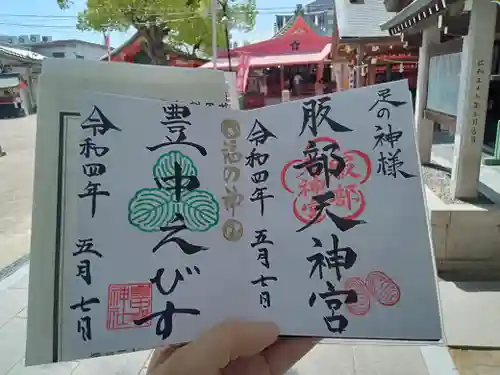 足の神様
服部天神宮
服部
天神宮
令和四年
五月七日
福の神
豊中えびす
令和四年
五月七日